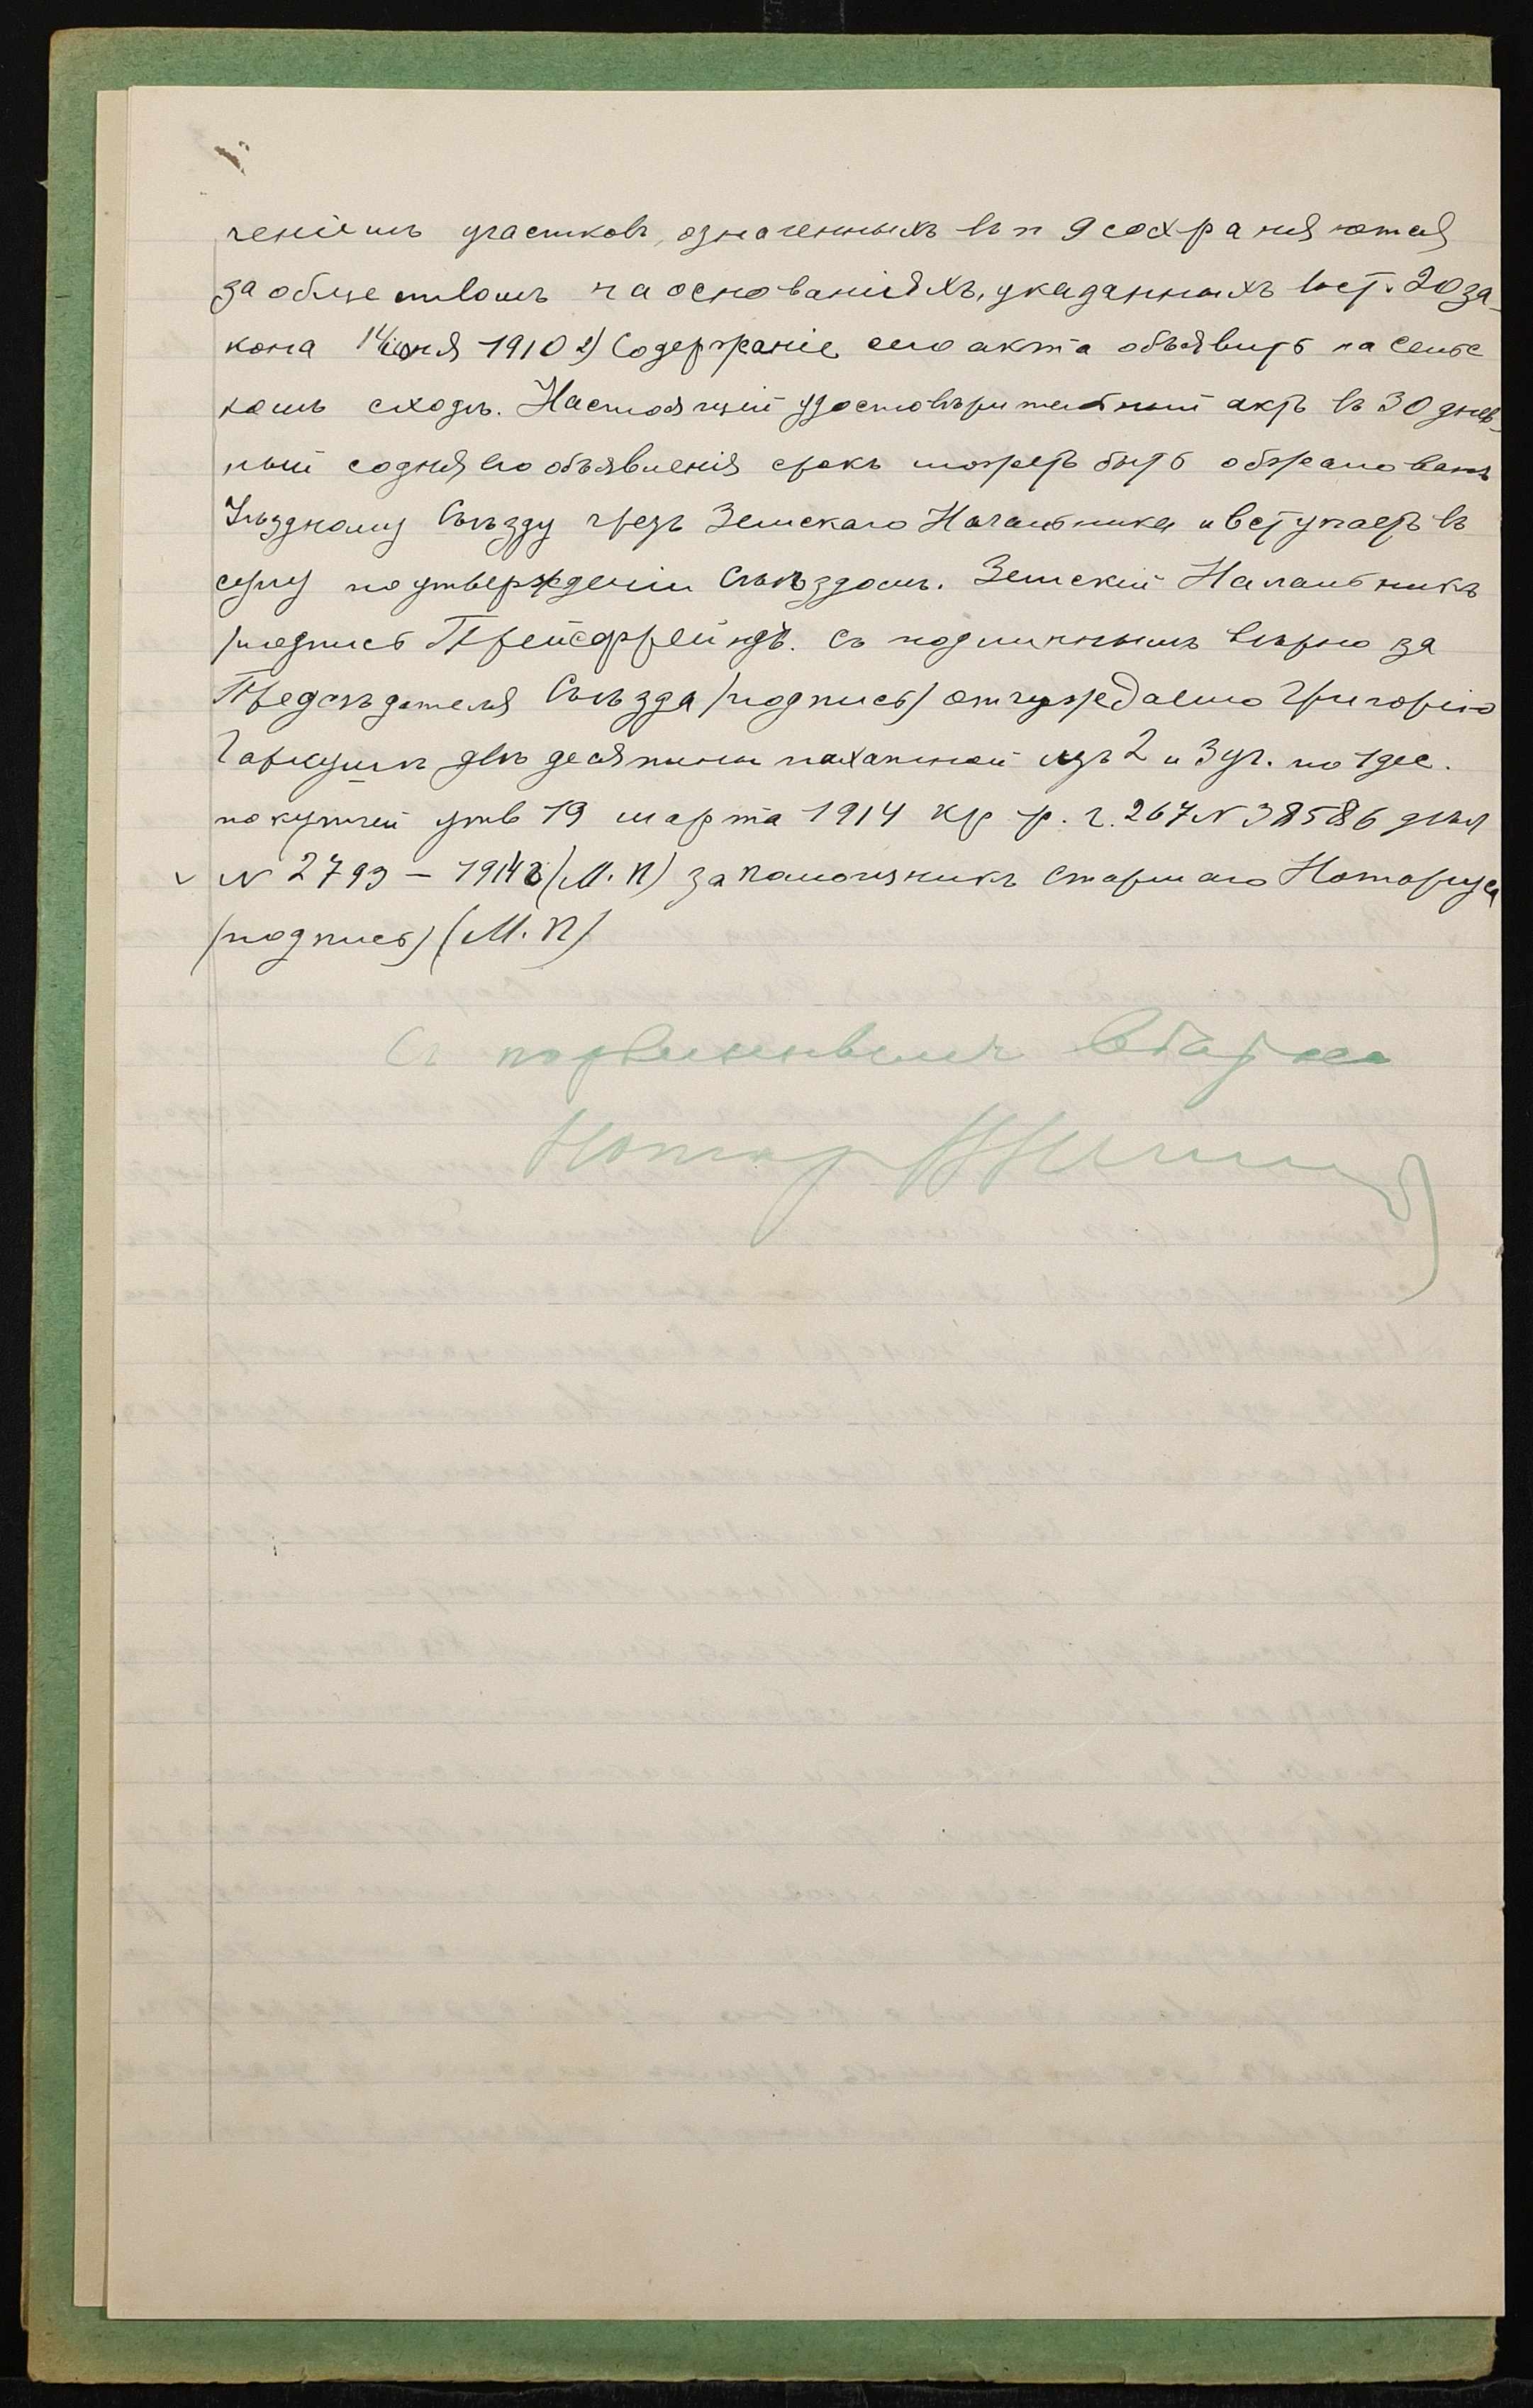 ченіемъ участковъ, означенныхъ въ п 9 сохраняются
за обществомъ на основаніяхъ, указанныхъ въ ст. 20 за-
кона 14 іюня 1910 2) Содержаніе сего акта объявить на сельс
комъ сходѣ. Настоящій удостовѣрительный актъ въ 30 днев-
ный со дня его объявленія срокъ можетъ быть обжалованъ
Уѣздному Съѣзду чрезъ Земскаго Начальника и вступаетъ въ
силу по утвержденіи Съѣздомъ. Земскій Начальникъ
/подпись Прейсфрейндъ. Съ подлиннымъ вѣрно за
Предсѣдателя Съѣзда /подпись/ отчуждаемо Григорію
двѣ десятины пахатной изъ 2 и 3 уч. по 1 дес.
по купчей утв 19 марта 1914 кр р. г. 267 N 38586 дѣла
N 2793 – 1914 г (М. П) за помощникъ Старшаго Нотаріуса
/подпись) (М. П)
Съ подлиннымъ вѣрно
Нотар